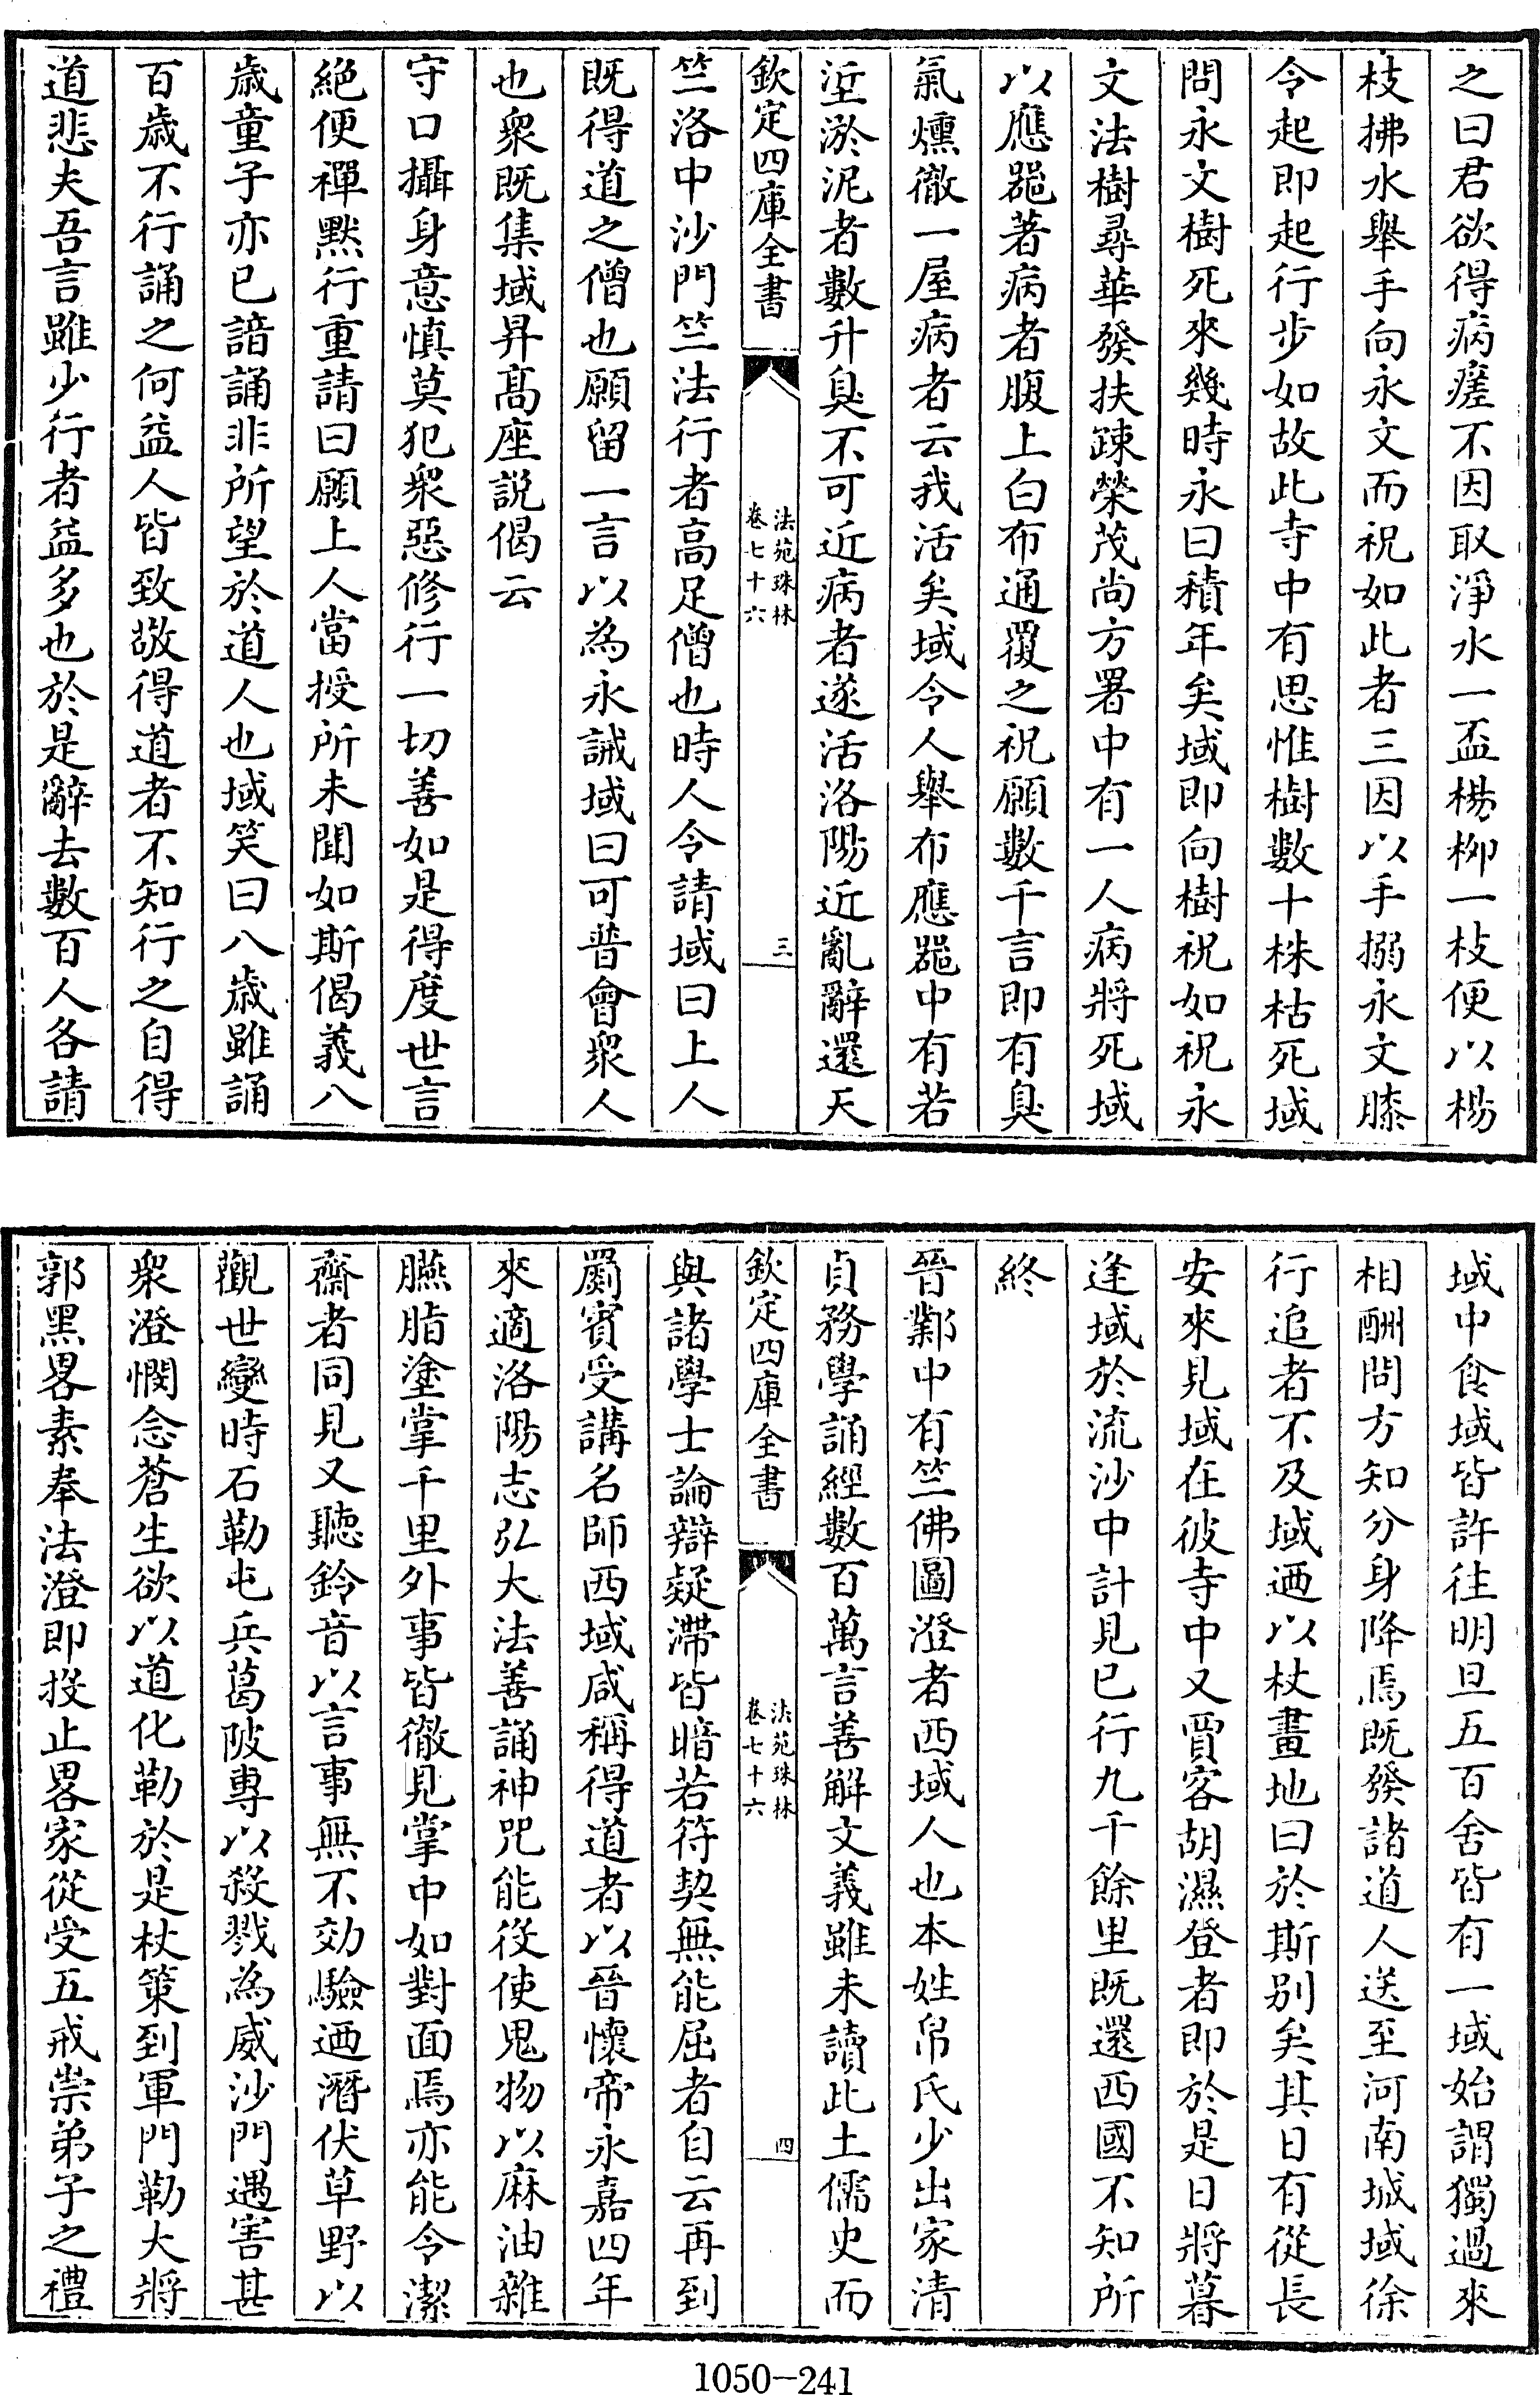 之曰君欲得病瘥不因取淨水一盃楊柳一枝便以楊
枝拂水舉手向永文而祝如此者三因以手搦永文膝
令起即起行步如故此寺中有思惟樹數十株枯死域
問永文樹死來幾時永曰積年矣域即向樹祝如祝永
文法樹尋華發扶踈榮茂尚方署中有一人病將死域
以應器著病者腹上白布通覆之祝願數千言即有臭
氣燻徹一屋病者云我活矣域令人舉布應器中有若
埿淤泥者數升臭不可近病者遂活洛陽近亂辭還天
欽定四庫全書
法苑珠林
卷七十六
三
竺洛中沙門竺法行者高足僧也時人令請域曰上人
既得道之僧也願留一言以為永誡域曰可普會衆人
也衆既集域昇髙座説偈云
守口攝身意慎莫犯衆惡修行一切善如是得度世言
絶便禪黙行重請曰願上人當授所未聞如斯偈義八
歲童子亦已諳誦非所望於道人也域笑曰八歲雖誦
百歲不行誦之何益人皆致敬得道者不知行之自得
道悲夫吾言雖少行者益多也於是辭去數百人各請
域中食域皆許往明旦五百舍皆有一域始謂獨過來
相酬問方知分身降焉既發諸道人送至河南城域徐
行追者不及域迺以杖畫地曰於斯别矣其日有從長
安來見域在彼寺中又賈客胡濕登者即於是日將暮
逢域於流沙中計見已行九千餘里既還西國不知所
終
晉鄴中有竺佛圖澄者西域人也本姓帛氏少出家清
貞務學誦經數百萬言善解文義雖未讀此土儒史而
欽定四庫全書
法苑珠林
卷七十六
四
與諸學士論辯疑滯皆暗若符契無能屈者自云再到
罽賓受講名師西域咸稱得道者以晉懷帝永嘉四年
來適洛陽志弘大法善誦神咒能役使鬼物以麻油雜
臙脂塗掌千里外事皆徹見掌中如對面焉亦能令潔
齋者同見又聽鈴音以言事無不効驗迺潛伏草野以
觀世變時石勒屯兵葛陂專以殺戮為威沙門遇害甚
衆澄憫念蒼生欲以道化勒於是杖策到軍門勒大將
郭黑畧素奉法澄即投止畧家從受五戒崇弟子之禮
1050-241